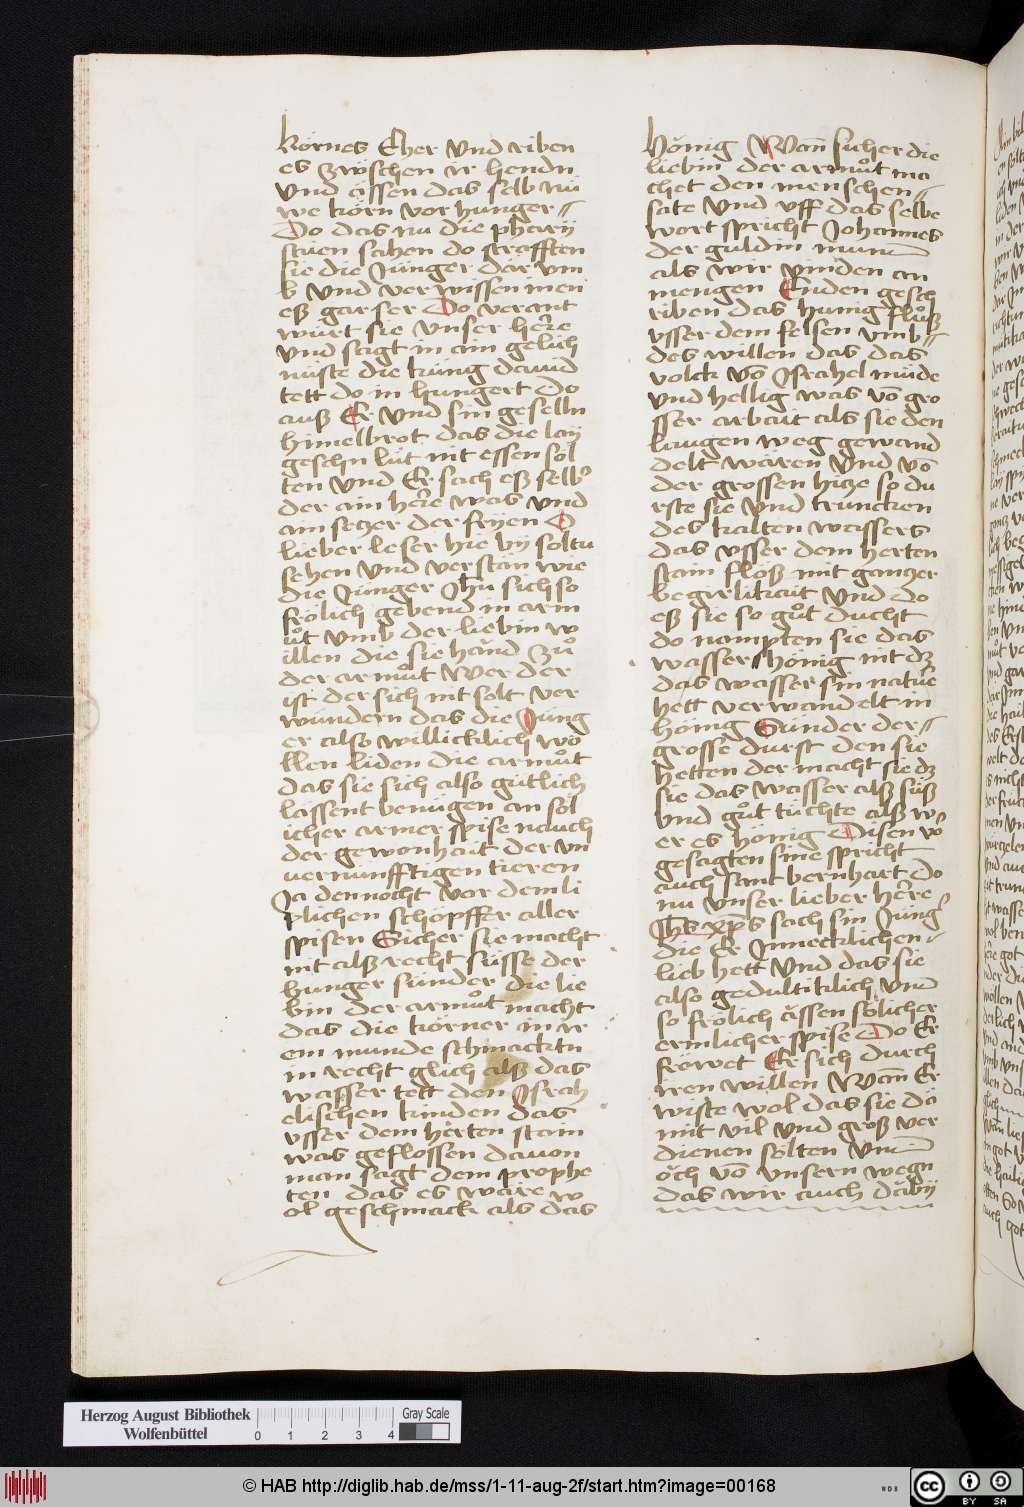 körnes Eher vnd riben
es zwöschen ir hendn
vnd ässen das selb nü
we körn vor hunger //
Do das nu die pharÿ
säen sahen do strafften
sie die Jünger dar vm
b vnd ver wissen inen
eß gar ser Do verant
würt sie vnser here
vnd sagt in ain gelich
nüste die küng dauid
tett do in hungert Do
auß Er vnd sin geselln
himelbrot das die laÿ
geschn lüt nit essen söl
ten vnd Er sach eß selb
der ain here was vnd
ain setzer der frÿen O
lieber leser hie bÿ soltu
sehen vnd verstän wie
die Junger Jhu sich so
frölich gebend in arm
uͦt vmb der liebin w
illen die sie hānd zuͦ
der armuͦt Wer der
ist der sich nit solt ver
wundern das die Jüng
er also willicklich wö
llen liden die armuͦt
das sie sich also gütlich
lässent benügen an söl
icher armer spise nauch
der gewonhait der vn
uernunfftigen tieren
Ja dennocht vor dem li
plichen schöpffer aller
spisen Sicher sie macht
nit alß recht süsse der
hunger sünder die lie
bin der armuͦt macht
das die körner in ir
em munde schmacktn
in recht glich alß das
wasser tett den Jsrah
elischen kinden das
vsser dem herten stain
was geflossen dauon
man sagt dem prophe
ten das es wäre w
ol geschmack als das
hönig Wan̄ sicher die
liebin der armuͦt ma
chet den menschen //
sate vnd vff das selbe
wort spricht Johannes
der guldin mund
als wir vinden an
mengen Enden gesch
riben das hunig fluͦß
vsser dem felsen vmb //
des willen das das
volck vō Jsrahel müde
vnd hellig was vō gro
sser arbait als sie den
langen weg gewand
delt wären vnd vō
der grossen hitze so du
rste sie vnd truncken
des kalten wassers
das vsser dem herten
stain floß mit gantzer
begirlikait vnd do
eß sie so guͦt ducht
do nampten sie das
wasser hönig nit dz
das wasser sin natur
hett verwandelt in
hönig Sünder der //
grosse durst den sie
hetten der macht sie dz
sie das wasser alß süß
vnd guͦt tüchte alß w
er es hönig Disen vo
gesagten sine spricht
auch sant bernhart Do
nu vnser lieber here
Jhs xp̄s sach sin Jüng
die Er Jnnecklichen //
lieb hett vnd das sie
also gedultiklich vnd
so frölich ässen sölicher
ermlicher spise Do Er
fröwet Er sich durch
iren willen Wan̄ Er
wiste wol das sie dä
mit vil vnd groß ver
dienen sölten vnd
öch vō vnsern wegn
das wir auch däbÿ
Herzog August Bibliothek
Wolfenbüttel
0 1 2 3 4
Gray Scale
© HAB http://diglib.hab.de/mss/1-11-aug-2f/start.htm?image=00168
WDB
cc BY SA